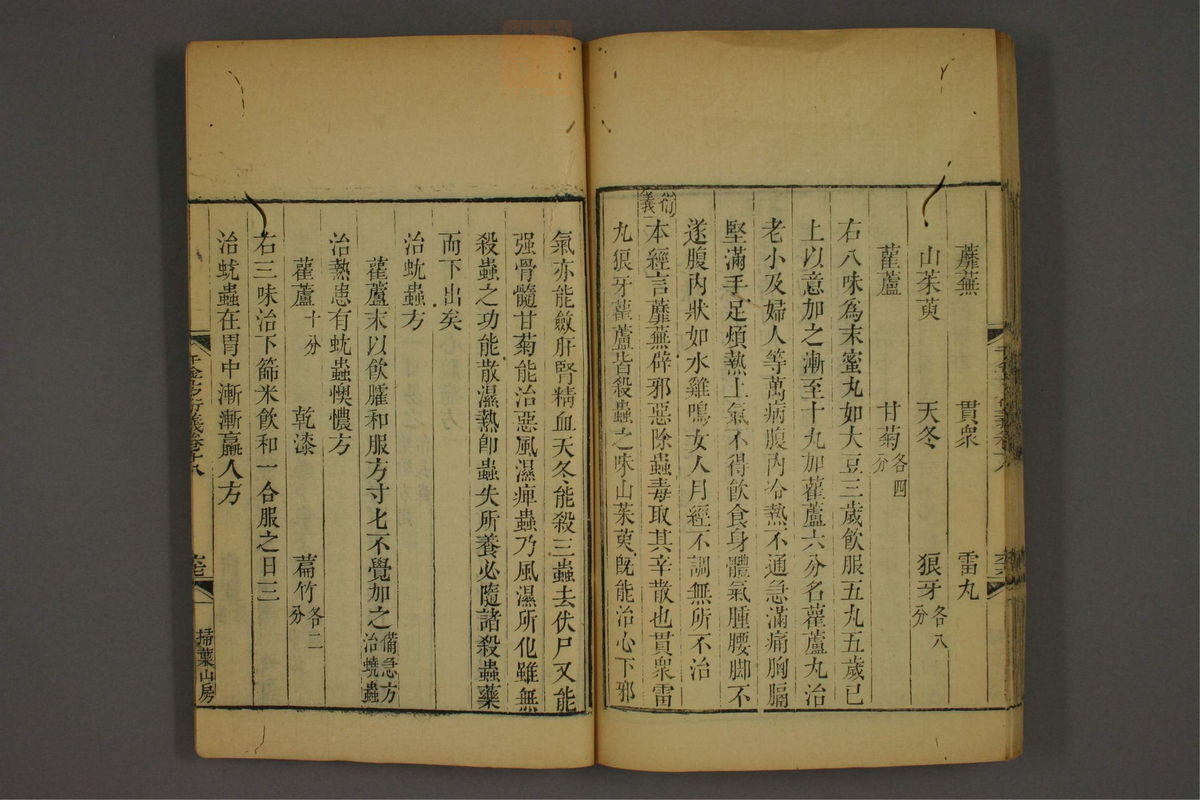 蘼蕪 貫衆 雷丸
山茱萸 天冬 狼牙各八分
雚蘆 甘菊各四分
右八味爲末蜜丸如大豆三歲飲服五丸五歲已
上以意加之漸至十丸加雚蘆六分名雚蘆丸治
老小及婦人等萬病腹內冷熱不通急滿痛胸膈
堅滿手足煩熱上氣不得飲食身體氣腫腰脚不
遂腹內狀如水雞鳴女人月經不調無所不治
衍義本經言蘼蕪辟邪惡除蟲毒取其辛散也貫衆雷
丸狼牙雚蘆皆殺蟲之味山茱萸旣能治心下邪
氣亦能斂肝腎精血天冬能殺三蟲去伏尸又能
强骨髓甘菊能治惡風濕痺蟲乃風濕所化雖無
殺蟲之功能散濕熱卽蟲失所養必隨諸殺蟲藥
而下出矣
治蚘蟲方
雚蘆末以飲臛和服方寸匕不覺加之備急方治蟯蟲
治熱患有蚘蟲懊憹方
雚蘆十分 乾漆 萹竹各二分
右三味治下篩米飲和一合服之日三
治蚘蟲在胃中漸漸羸人方
千金方衍義卷十八
掃葉山房